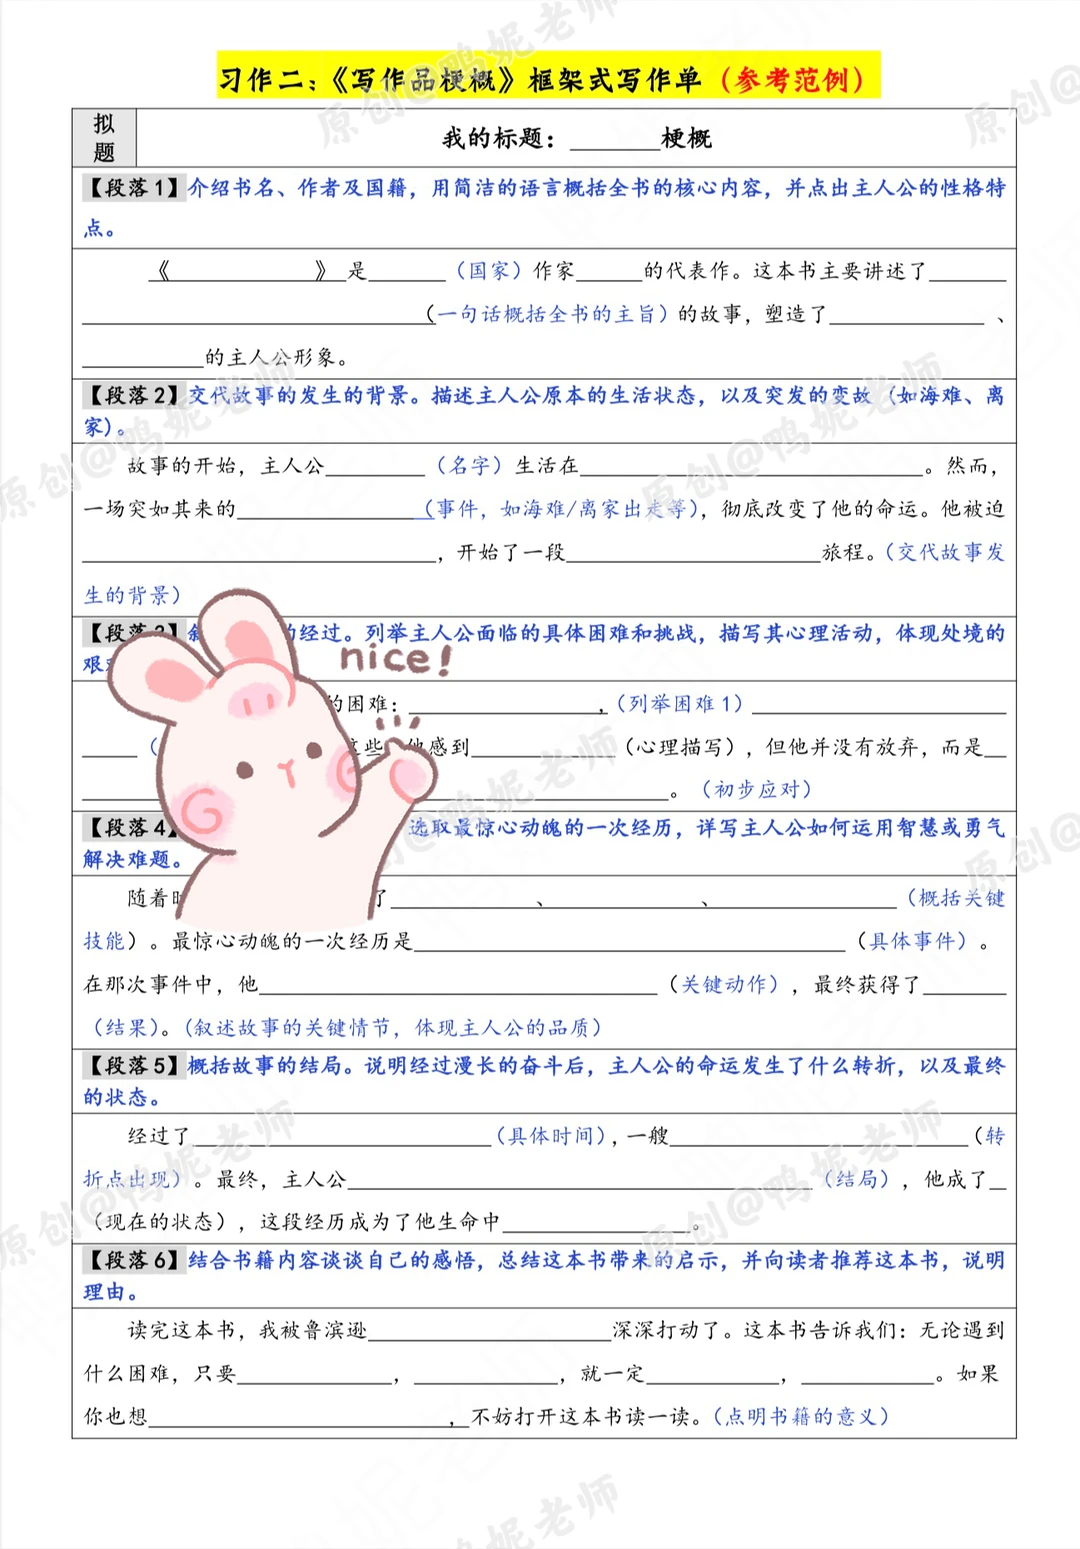 习作二：《写作品梗概》框架式写作单（参考范例）
拟题
我的标题：______梗概
【段落1】介绍书名、作者及国籍，用简洁的语言概括全书的核心内容，并点出主人公的性格特
点。
《 》 是______（国家）作家______的代表作。这本书主要讲述了______
______（一句话概括全书的主旨）的故事，塑造了______ 、
______的主人公形象。
【段落2】交代故事的发生的背景。描述主人公原本的生活状态，以及突发的变故（如海难、离
家）。
故事的开始，主人公______（名字）生活在______。然而，
一场突如其来的______（事件，如海难/离家出走等），彻底改变了他的命运。他被迫
______，开始了一段______旅程。（交代故事发
生的背景）
【段落3】 的经过。列举主人公面临的具体困难和挑战，描写其心理活动，体现处境的
nice!
的困难：______，（列举困难1）______
______（ 这些 他感到______（心理描写），但他并没有放弃，而是__
______。（初步应对）
【段落4 选取最惊心动魄的一次经历，详写主人公如何运用智慧或勇气
解决难题。
随着 了______、______、______（概括关键
技能）。最惊心动魄的一次经历是______（具体事件）。
在那次事件中，他______（关键动作），最终获得了______
（结果）。（叙述故事的关键情节，体现主人公的品质）
【段落5】概括故事的结局。说明经过漫长的奋斗后，主人公的命运发生了什么转折，以及最终
的状态。
经过了______（具体时间），一艘______（转
折点出现）。最终，主人公______（结局），他成了__
（现在的状态），这段经历成为了他生命中______。
【段落6】结合书籍内容谈谈自己的感悟，总结这本书带来的启示，并向读者推荐这本书，说明
理由。
读完这本书，我被鲁滨逊______深深打动了。这本书告诉我们：无论遇到
什么困难，只要______，______，就一定______，______。如果
你也想______，不妨打开这本书读一读。（点明书籍的意义）
原创@鸭妮老师